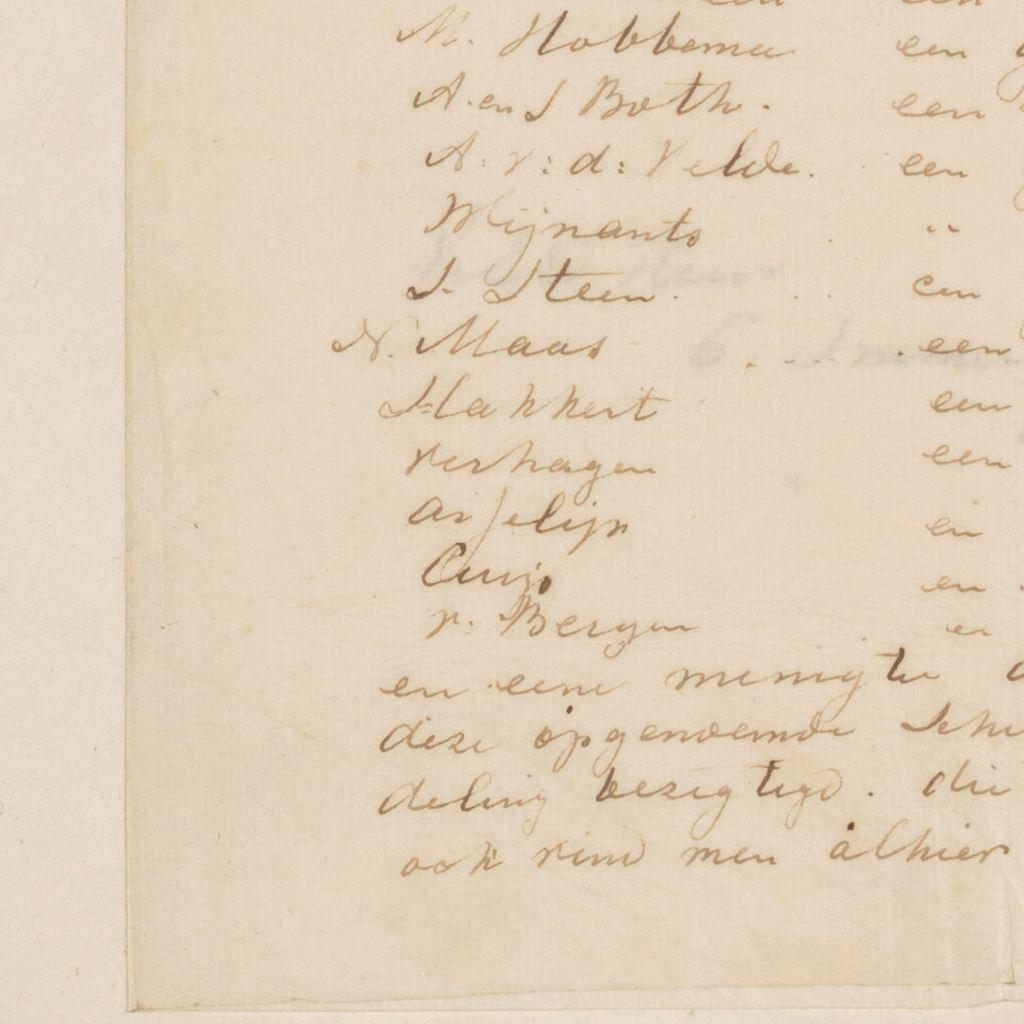 een een
M. Hobbema een g
A. en J Both. een
A. v: d: Velde. een
Wijnants "
J. Steen. een
N. Maas een
Hakkert een
verhagen een
Asselijn en
Cuijp en
v: Bergen en
en eene menigte
deze opgenoemde Schi
deling bezigtigd. die
ook vind men alhier